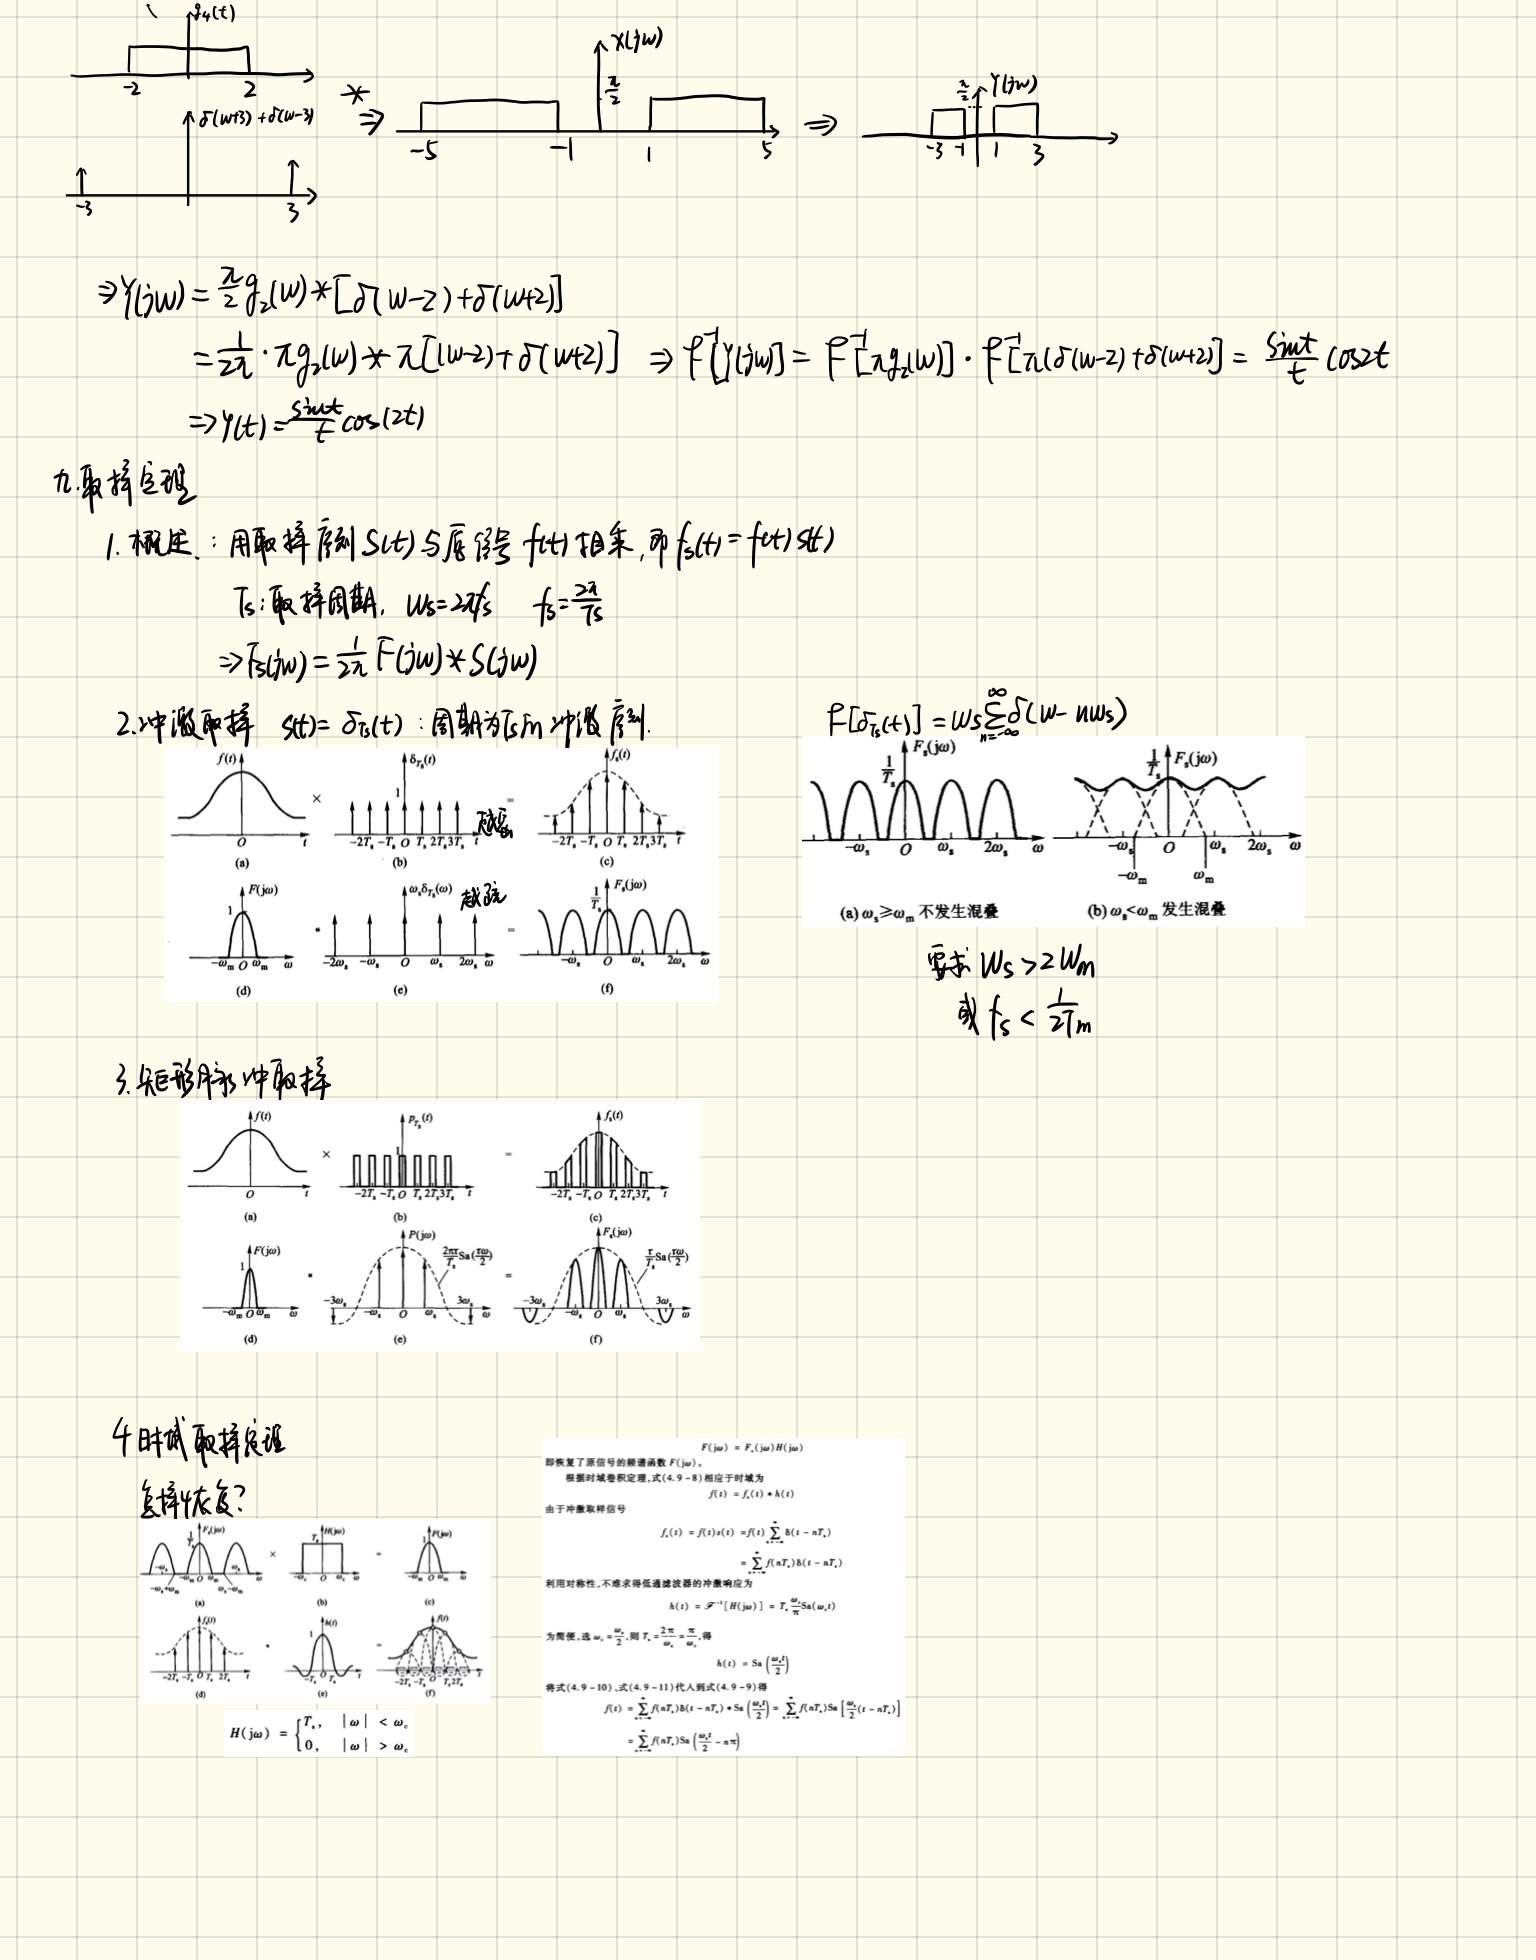 g₄(t)
-2 2
δ(w+3)+δ(w-3)
-3 3
* ⇒
X(jw)
π/2
-5 -1 1 5
⇒
Y(jw)
π/2
-3 -1 1 3
⇒Y(jw) = π/2 g₂(w)*[δ(w-2)+δ(w+2)]
= 1/2π · πg₂(w) * π[(w-2)+δ(w+2)] ⇒ F⁻¹[Y(jw)] = F⁻¹[πg₂(w)] · F⁻¹[π(δ(w-2)+δ(w+2)] = sint/t cos2t
⇒ y(t) = sint/t cos(2t)
九.取样定理
1. 概述：用取样序列 S(t) 与原信号 f(t) 相乘, 即 fs(t) = f(t)s(t)
Ts：取样周期, ws=2πfs fs=2π/Ts
⇒Fs(jw) = 1/2π F(jw)*S(jw)
2.冲激取样 s(t)= δTs(t)：周期为Ts的冲激序列.
F[δTs(t)] = ws Σ(n=-∞→∞) δ(w-nws)
f(t) O t (a)
×
δTs(t) 1 -2Ts -Ts O Ts 2Ts 3Ts t (b)
=
fs(t) -2Ts -Ts O Ts 2Ts 3Ts t (c)
F(jω) 1 -ωm O ωm ω (d)
*
ωsδTs(ω) 越疏 -2ωs -ωs O ωs 2ωs ω (e)
=
Fs(jω) 1/Ts -ωs O ωs 2ωs ω (f)
Fs(jω) 1/Ts -ωs O ωs 2ωs ω
(a) ωs≥ωm 不发生混叠
Fs(jω) 1/Ts -ωs O ωs 2ωs ω
-ωm ωm
(b) ωs<ωm 发生混叠
要求 ws>2wm
或 fs < 1/2Tm
3.矩形脉冲取样
f(t) O t (a)
×
pTs(t) 1 -2Ts -Ts O Ts 2Ts 3Ts t (b)
=
fs(t) -2Ts -Ts O Ts 2Ts 3Ts t (c)
F(jω) 1 -ωm O ωm ω (d)
*
P(jω) 2πτ/Ts Sa(τω/2) -3ωs -ωs O ωs 3ωs ω (e)
=
Fs(jω) τ/Ts Sa(τω/2) -3ωs -ωs O ωs 3ωs ω (f)
4 时域取样定理
怎样恢复?
Fs(jω) 1/Ts -ωs -ωm O ωm ωs ω
-ωs+ωm ωs-ωm
(a)
×
H(jω) Ts -ωc O ωc ω (b)
=
F(jω) 1 -ωm O ωm ω (c)
fs(t) -2Ts -Ts O Ts 2Ts t (d)
*
h(t) 1 -Ts O Ts t (e)
=
f(t) -2Ts -Ts O Ts 2Ts t (f)
H(jω) = {Ts, |ω| < ωc
0, |ω| > ωc
F(jω) = Fs(jω)H(jω)
即恢复了原信号的频谱函数 F(jω)。
根据时域卷积定理,式(4.9-8)相应于时域为
f(t) = fs(t) * h(t)
由于冲激取样信号
fs(t) = f(t)s(t) = f(t) Σ(n=-∞→∞) δ(t-nTs)
= Σ(n=-∞→∞) f(nTs)δ(t-nTs)
利用对称性,不难求得低通滤波器的冲激响应为
h(t) = ℱ⁻¹[H(jω)] = Ts ωc/π Sa(ωct)
为简便,选 ωc = ωs/2,则 Ts = 2π/ωs = π/ωc,得
h(t) = Sa(ωst/2)
将式(4.9-10)、式(4.9-11)代入到式(4.9-9)得
f(t) = Σ(n=-∞→∞) f(nTs)δ(t-nTs) * Sa(ωst/2) = Σ(n=-∞→∞) f(nTs)Sa[ωs/2(t-nTs)]
= Σ(n=-∞→∞) f(nTs)Sa(ωst/2 - nπ)